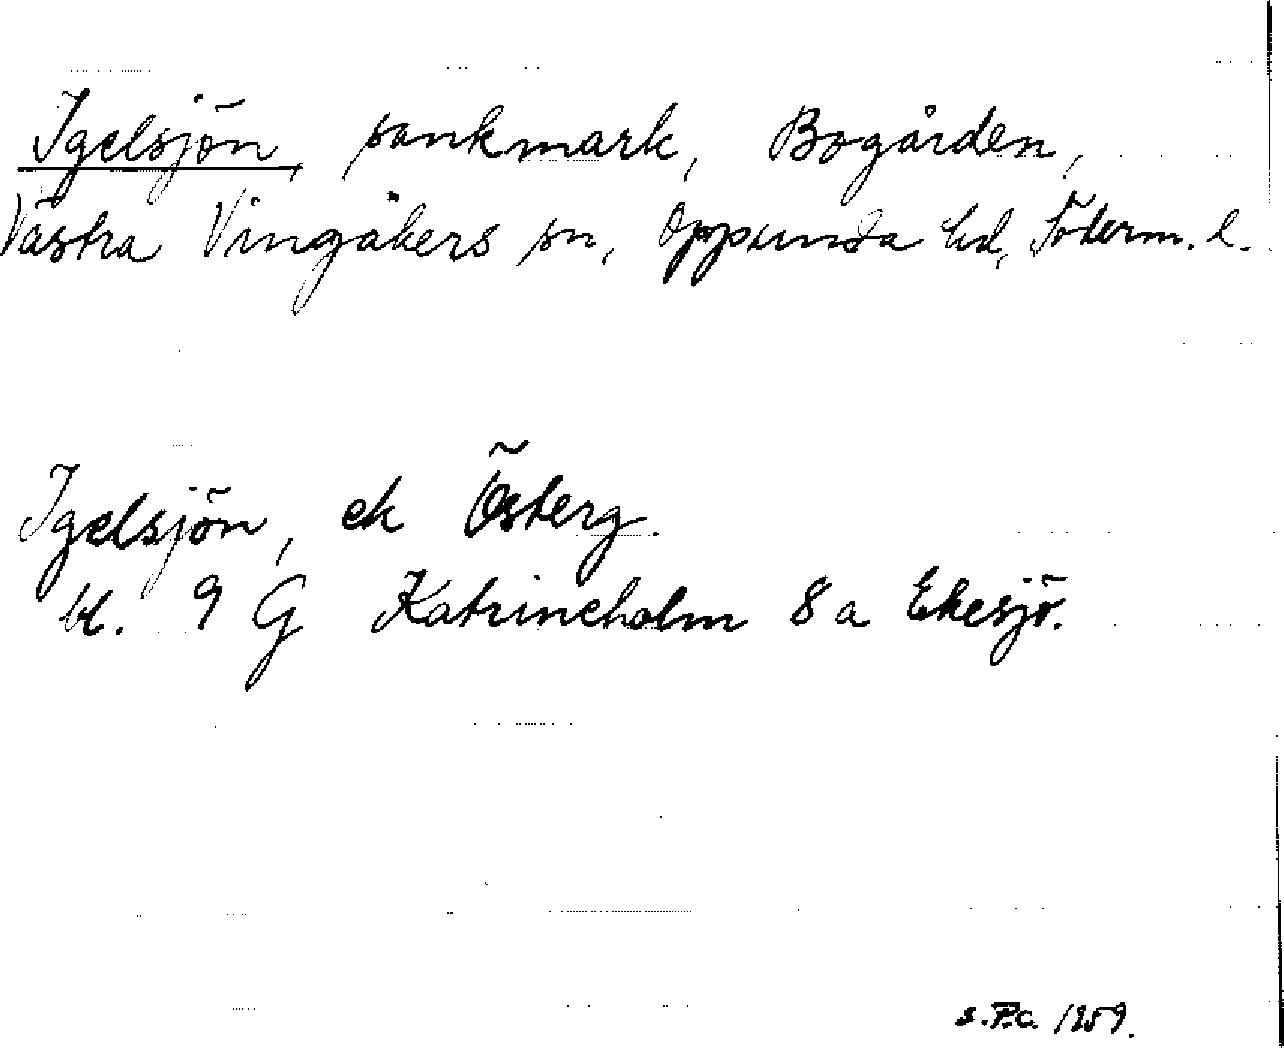 Igelsjön, sankmark, Bogården,
Västra Vingåkers sn, Oppunda hd, Söderm. l.
Igelsjön, ek Österg.
bl. 9 G Katrineholm 8 a Ekesjö.
1959.